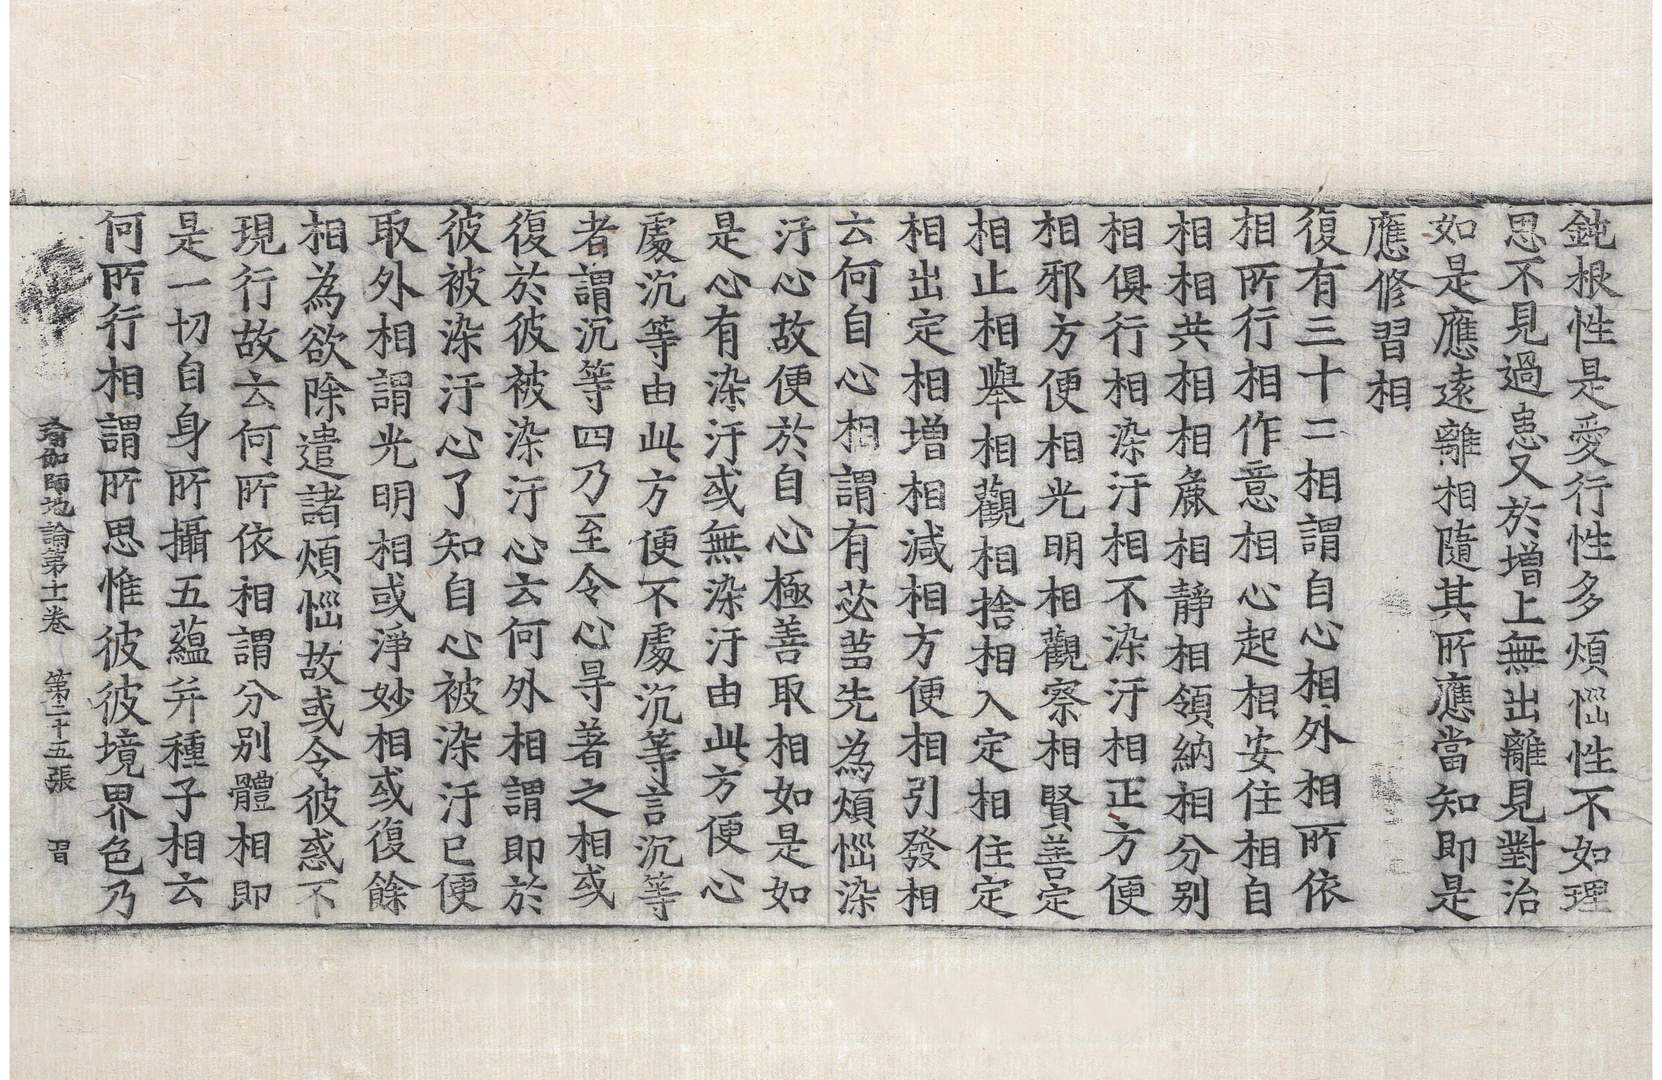 鈍根性是愛行性多煩惱性不如理
思不見過患又於增上無出離見對治
如是應遠離相隨其所應當知即是
應修習相
復有三十二相謂自心相外相所依
相所行相作意相心起相安住相自
相相共相相麁相靜相領納相分別
相俱行相染汙相不染汙相正方便
相邪方便相光明相觀察相賢善定
相止相舉相觀相捨相入定相住定
相出定相增相減相方便相引發相
云何自心相謂有苾芻先為煩惱染
汙心故便於自心極善取相如是如
是心有染汙或無染汙由此方便心
處沉等由此方便不處沉等言沉等
者謂沉等四乃至令心㝵著之相或
復於彼被染汙心云何外相謂即於
彼被染汙心了知自心被染汙已便
取外相謂光明相或淨妙相或復餘
相為欲除遣諸煩惱故或令彼惑不
現行故云何所依相謂分別體相即
是一切自身所攝五蘊并種子相云
何所行相謂所思惟彼彼境界色乃
瑜伽師地論第十一卷 第二十五張 習